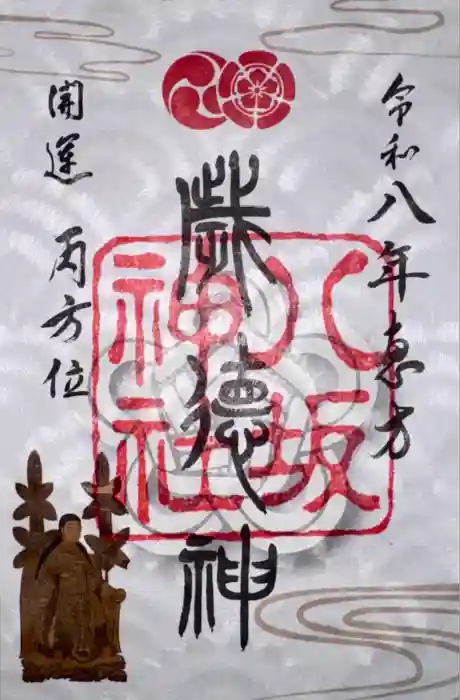 令和八年恵方
歳德神
開運 丙方位
八坂
神社